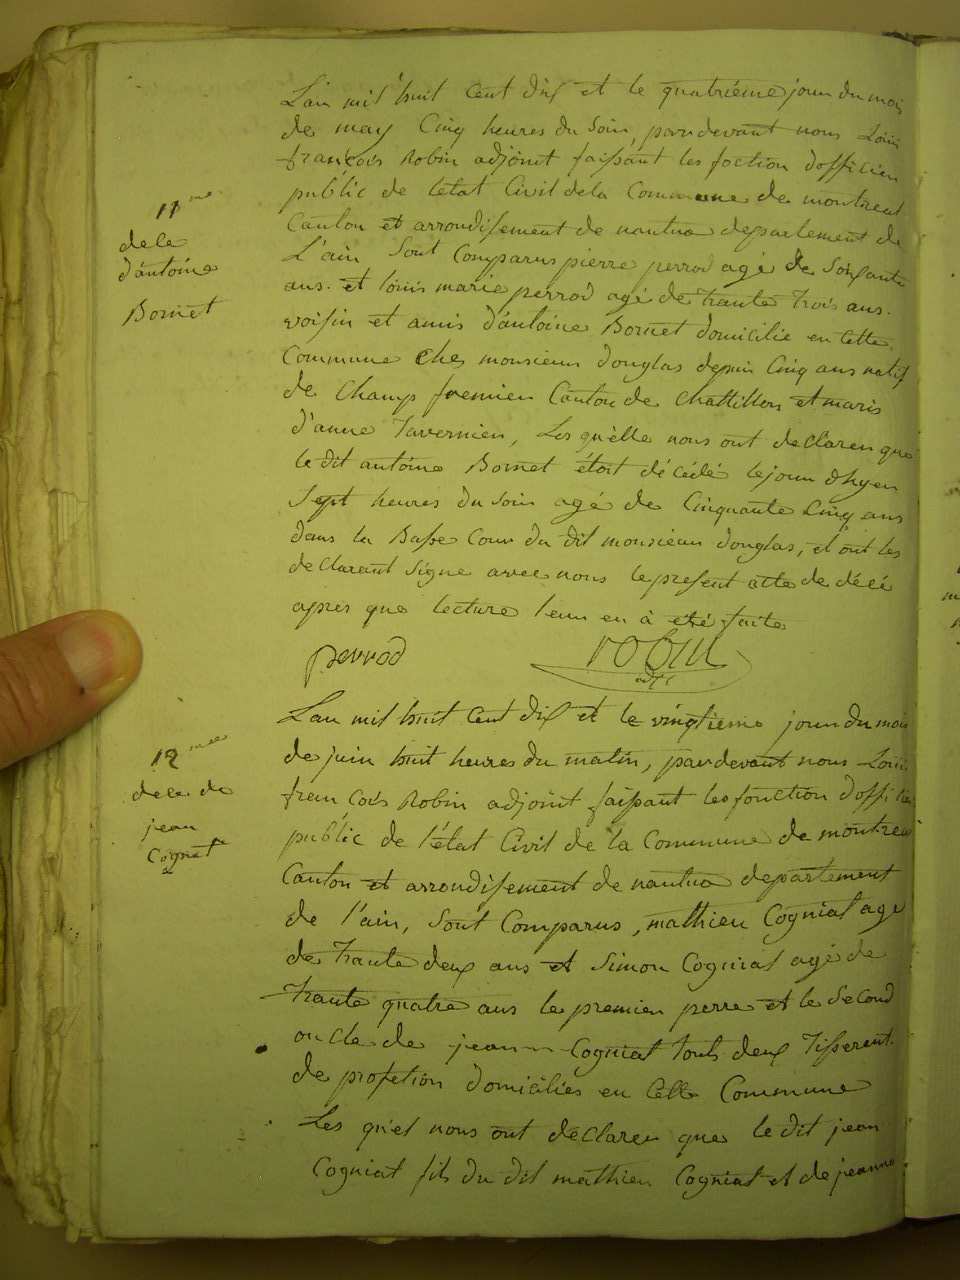 11me
dece
d'antoine
Bornet
L'an mil huit cent dix et le quatriéme jour du mois
de may Cinq heures du soir, pardevant nous Loüis
françois Robin adjoint faissant les foction d'officier
public de létat Civil dela Commune de montreal
Canton et arrondisement de nantua departement de
L'ain Sont Comparus pierre perrod agé de soixante
ans. et loüis marie perrod agé de trante trois ans.
voisin et amis d'antoine Bornet domicilié en cette
Commune chés monsieur douglas depuis Cinq ans natif
de Champ fremier Canton de Chattillon et maris
d'anne Tavernier, Les quélle nous ont declarer que
le dit antoine Bornet étoit décédé le jour dhyer
Sept heures du soir agé de Cinquante Cinq ans
dans la Basse Cour du dit monsieur douglas, et ont les
declarant Signe avec nous le present acte de décé
apres que lecture leur en à eté faite
perrod robin
adjt
12mee
dece de
jean
Cogniat
L'an mil huit Cent dix et le vingtieme jour du mois
de juin huit heures du matin, pardevant nous Loüis
francois Robin adjoint faissant les fonction d'officier
public de l'état Civil de la Commune de montreal
Canton et arrondisement de nantua departement
de l'ain, sont Comparus, mathieu Cogniat agé
de trante deux ans et Simon Cogniat agé de
trante quatre ans le premier perre et le second
oncle de jean Cogniat touts deux Tisserent
de profetion domiciliés en Cette Commune
Les qu'el nous ont declarer que le dit jean
Cogniat fils du dit mathieu Cogniat et de jeanne